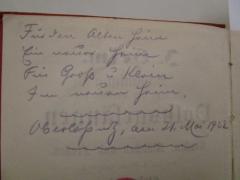 Für den Alten Heim
Ein neues Heim
Für Groß u Klein
Im neuen Heim.
Oberlößnitz, den 21. Mai 1922